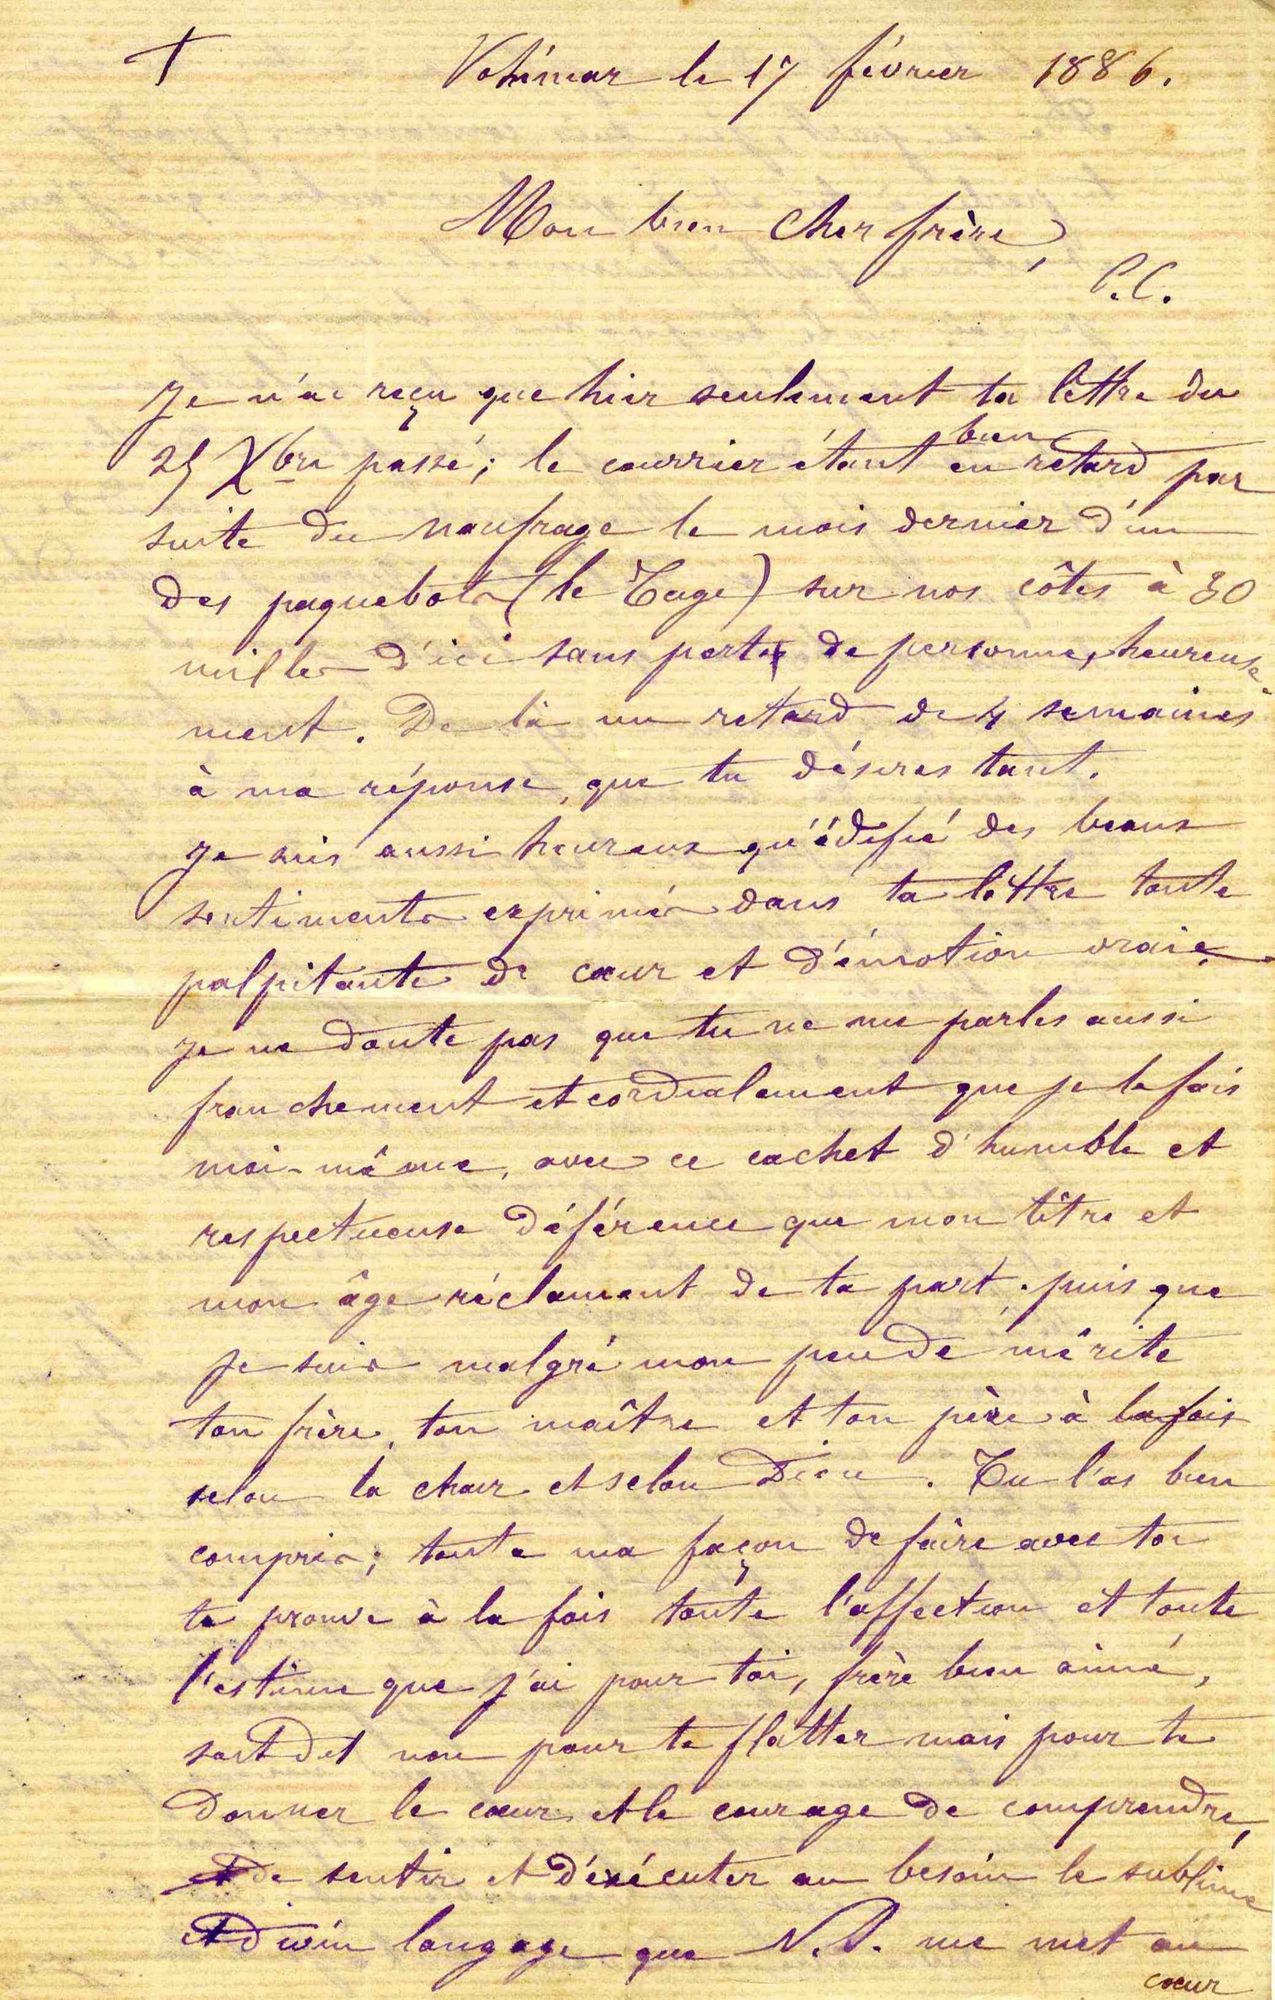 †
Vohémar le 17 février 1886.
Mon bien cher frère,
P.C.
Je n'ai reçu que hier seulement ta lettre du
25 Xbre passé; le courrier étant bien en retard par
suite du naufrage le mois dernier d'un
des paquebots (le Tage) sur nos côtes à 30
milles d'ici sans perte de personne, heureuse-
ment. De là un retard de 4 semaines
à ma réponse, que tu désires tant.
Je suis aussi heureux qu'édifié des beaux
sentiments exprimés dans ta lettre toute
palpitante de cœur et d'émotion vraie.
Je ne doute pas que tu ne me parles aussi
franchement et cordialement que je le fais
moi-même, avec ce cachet d'humble et
respectueuse déférence que mon titre et
mon âge réclament de ta part; puis que
je suis malgré mon peu de mérite
ton frère, ton maître et ton père à la fois
selon la chair et selon Dieu. Tu l'as bien
compris; toute ma façon de faire avec toi
te prouve à la fois toute l'affection et toute
l'estime que j'ai pour toi, frère bien aimé,
soit dit non pour te flatter mais pour te
donner le cœur et le courage de comprendre,
de sentir et d'exécuter au besoin le sublime
et divin langage que N.S. me met au
cœur